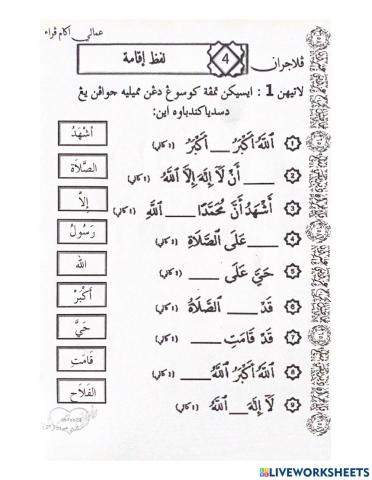 عمالي اکام قراء
ڤلاجران 4 لفظ إقامة
لاتيهن 1 : ايسيکن تمڤة کوسوڠ دڠن مميليه جواڤن يڠ
دسدياکندباوه اين:
1 اللَّهُ أَكْبَرُ ___ أَكْبَرُ (1 کالي)
2 ____ أَنْ لَآ إِلَهَ إِلَّا اللَّهُ (1 کالي)
3 أَشْهَدُ أَنَّ مُحَمَّدًا ____ اللَّهِ (1 کالي)
4 ____ عَلَى الصَّلَاةِ (1 کالي)
5 حَيَّ عَلَى ____ (1 کالي)
6 قَدْ ____ الصَّلَاةُ (1 کالي)
7 قَدْ قَامَتِ ____ (1 کالي)
8 اللَّهُ أَكْبَرُ اللَّهُ ____ (1 کالي)
9 لَآ إِلَهَ ___ اللَّهُ (1 کالي)
أَشْهَدُ
الصَّلَاة
إِلاَّ
رَسُولُ
الله
أَكْبَرْ
حَيَّ
قَامَتِ
الفَلَاح
LIVEWORKSHEETS